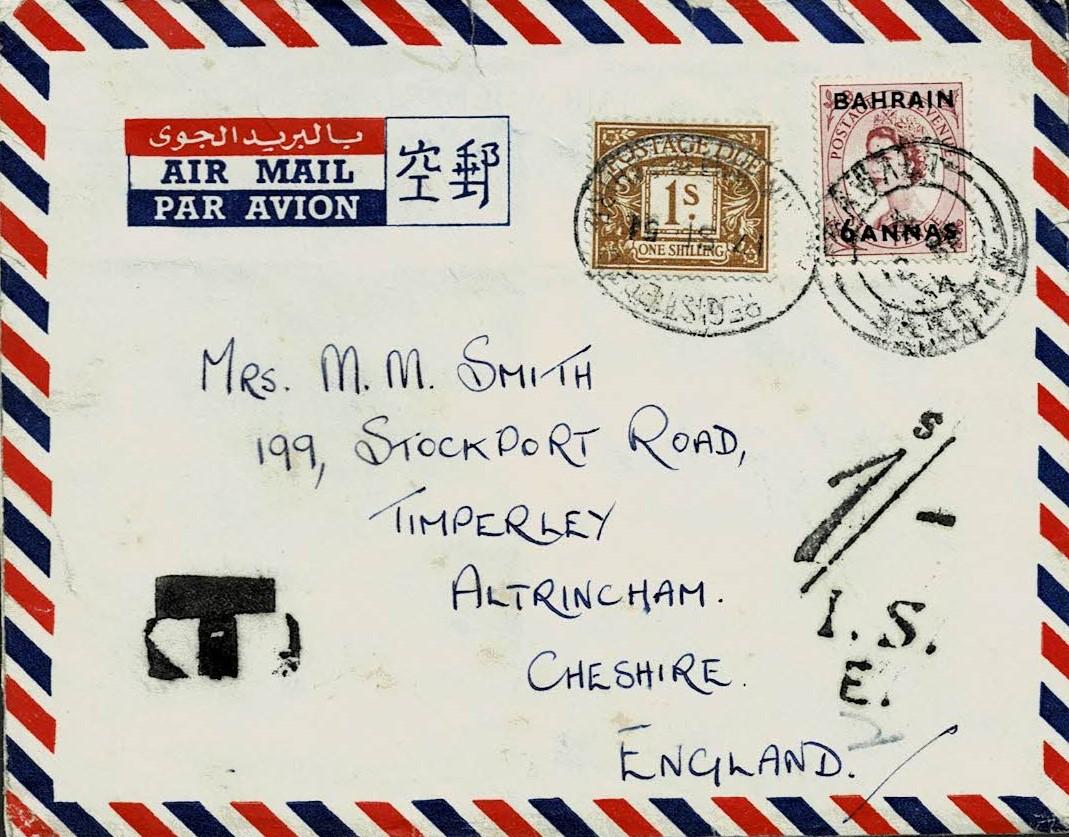 بالبريد الجوى
AIR MAIL
PAR AVION
空郵
POSTAGE DUE
1s.
ONE SHILLING
BAHRAIN
POSTAGE REVENUE
6 ANNAS
REGISTERED
AWALI
BAHRAIN
MRS. M. M. SMITH
199, STOCKPORT ROAD,
TIMPERLEY
ALTRINCHAM.
CHESHIRE.
ENGLAND.
1s/-
I.S.
E.
T